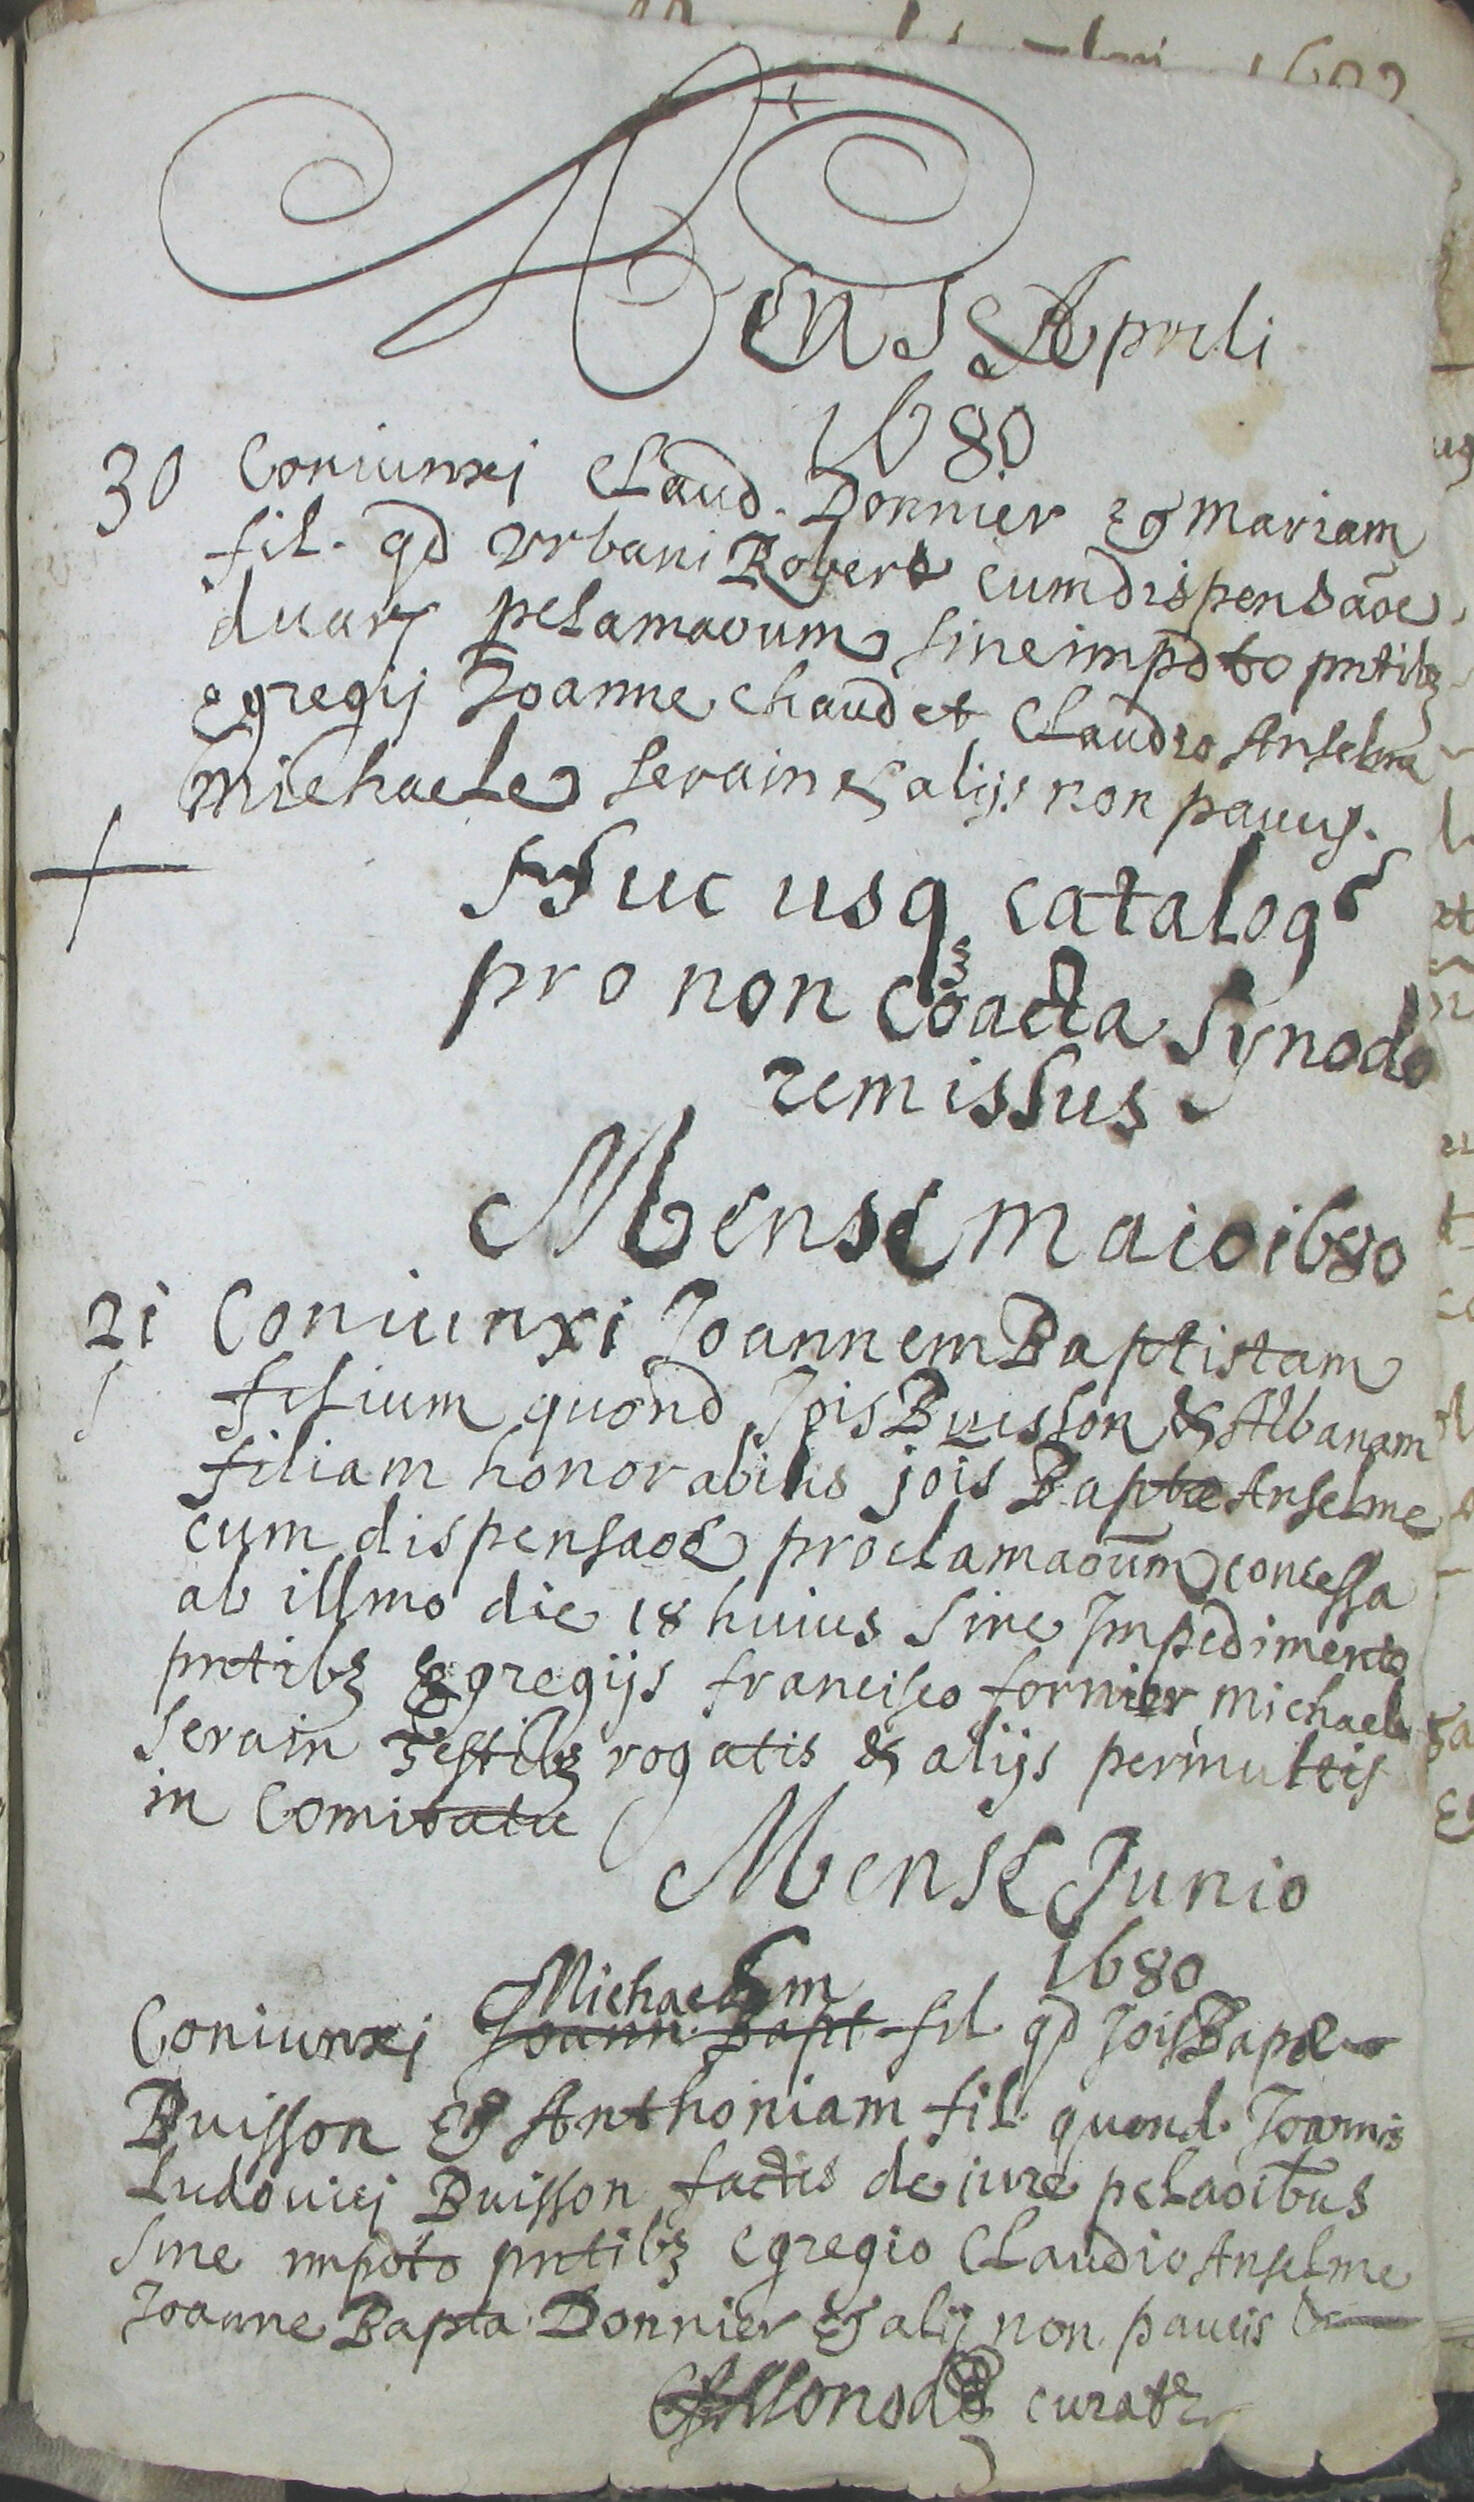 Mense Aprili
1680
30 Coniunxi Claud. Donnier & Mariam
fil. qd Vrbani Robert cum dispensaōe
duarꝝ pclamaoum sine impdto pntibꝫ
Egregij Joanne Chaudet Claudio Anselme
Michaele Serain & alijs non paucis.
Huc usqꝫ catalogꝰ
pro non coacta Synodo
remissus
Mense maio i680
2i Coniunxi Joannem Baptistam
filium quond Jois Buisson & Albanam
filiam honorabilis jois Baptæ Anselme
cum dispensaoē proclamaoum concessa
ab illmo die 18 huius sine Impedimento
pntibꝫ Egregijs francisco fornier michaele
Serain Testibꝫ rogatis & alijs permultis
in Comitatu
Mense Junio
1680
Michaelem
Coniunxi Joann. Bapt fil qd Jois Bapæ
Buisson & Anthoniam fil. quond. Joannis
Ludovici Buisson factis de iure pclaoibus
sine impdto pntibꝫ Egregio Claudio Anselme
Joanne Bapta Donnier & alij non paucis &
curatꝰ